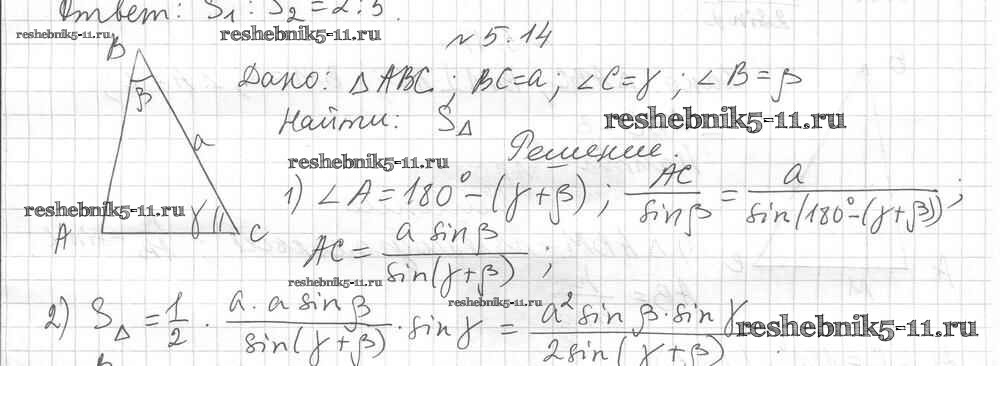 Ответ: S₁ : S₂ = 2 : 5.
reshebnik5-11.ru
reshebnik5-11.ru
N 5.14
B
β
a
A
γ
C
Дано: △ABC; BC=a; ∠C=γ; ∠B=β
Найти: S△
reshebnik5-11.ru
Решение.
reshebnik5-11.ru
1) ∠A = 180° − (γ+β); AC/sinβ = a/sin(180°−(γ+β));
reshebnik5-11.ru
AC = a sinβ/sin(γ+β);
reshebnik5-11.ru
reshebnik5-11.ru
2) S△ = 1/2 · a·a sinβ/sin(γ+β) · sinγ = a² sinβ·sinγ/2sin(γ+β)
reshebnik5-11.ru